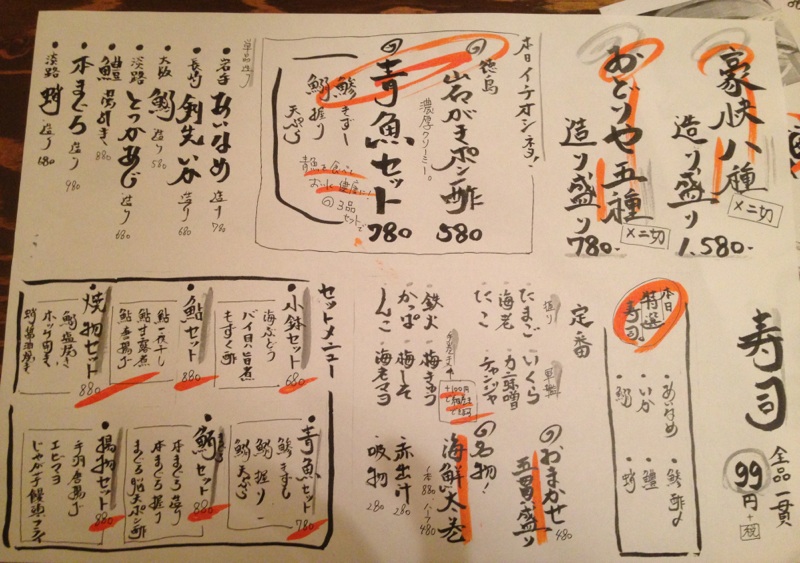 豪快八種
造り盛り
×二切
1,580-
おどりや五種
造り盛り
×二切
780-
本日イチオシネタ!
徳島
岩がきポン酢
濃厚クリーミー。
580
青魚セット
780
鯵もずー
鰯握り
天ぷら
青魚を食べて
おいしく健康に!
3品
セットで
単品造り
岩手 あいなめ 造り 780
長崎 剣先いか 造り 680
大阪 鰯 造り 580
淡路 とっかあじ 造り 680
鱧 湯引き 880
本まぐろ 造り 980
淡路 蛸 造り 680
寿司
全品一貫
99円+税
本日
特選
寿司
・あいなめ
・いか
・鰯
・鯵酢〆
・鱧
・蛸
定番
握り
・たまご
・海老
・たこ
・いくら
・カニ味噌
・チャンジャ
・鉄火
・かっぱ
・しんこ
・梅きゅう
・梅しそ
・海老マヨ
手巻き
+100円
おまかせ
五貫盛り
480
名物!
海鮮太巻
1本880
ハーフ480
赤出汁
280
吸物
280
セットメニュー
・小鉢セット
680
海ぶどう
バイ貝旨煮
もずく酢
・鮎セット
880
鮎一夜干し
鮎甘露煮
鮎唐揚げ
・焼物セット
880
鰯塩焼き
ホッケ開き
蛸醤油焼き
・青魚セット
780
鯵きずし
鰯握り
鰯天ぷら
・鮪セット
880
本まぐろ造り
本まぐろ握り
まぐろ
ポン酢
・揚物セット
880
手羽唐揚げ
エビマヨ
じゃが芋饅頭フライ